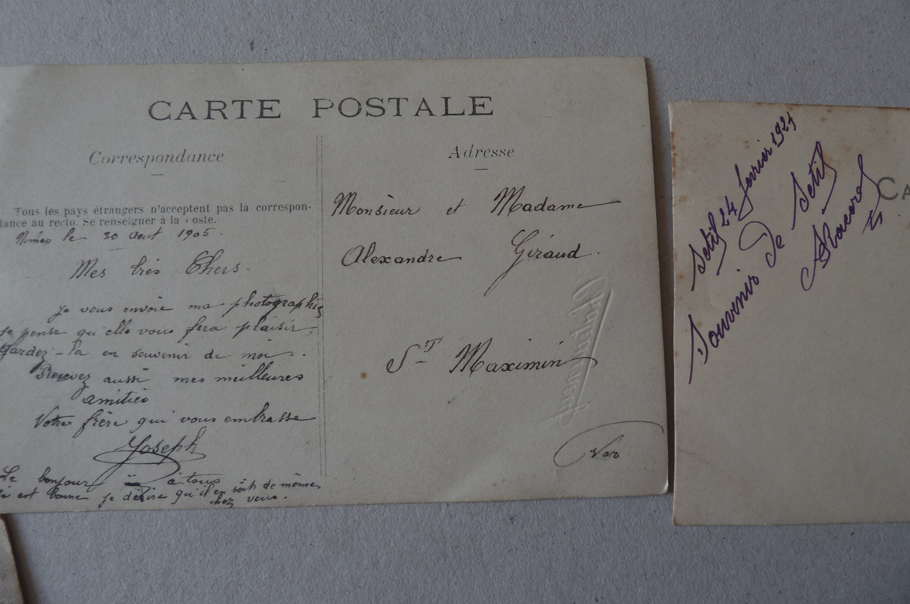 CARTE POSTALE
Correspondance
Adresse
Tous les pays étrangers n'acceptent pas la correspon-
dance au recto. Se renseigner à la poste.
le 30 Aout 1905.
Mes très Chers.
je vous envoie ma photographie
je pense qu'elle vous fera plaisir
Gardez-la en souvenir de moi.
Recevez aussi mes meilleures
amitiés
Votre frère qui vous embrasse
Joseph
Le bonjour à tous
est bonne je désire qu'il en soit de même
chez vous.
Monsieur et Madame
Alexandre Giraud.
St Maximin
Var
Setif 24 fevrier 1921
Souvenir De Setif
CA